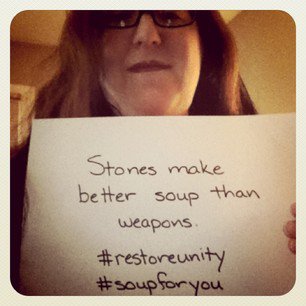 Stones make
better soup than
weapons.
#restoreunity
#soupforyou